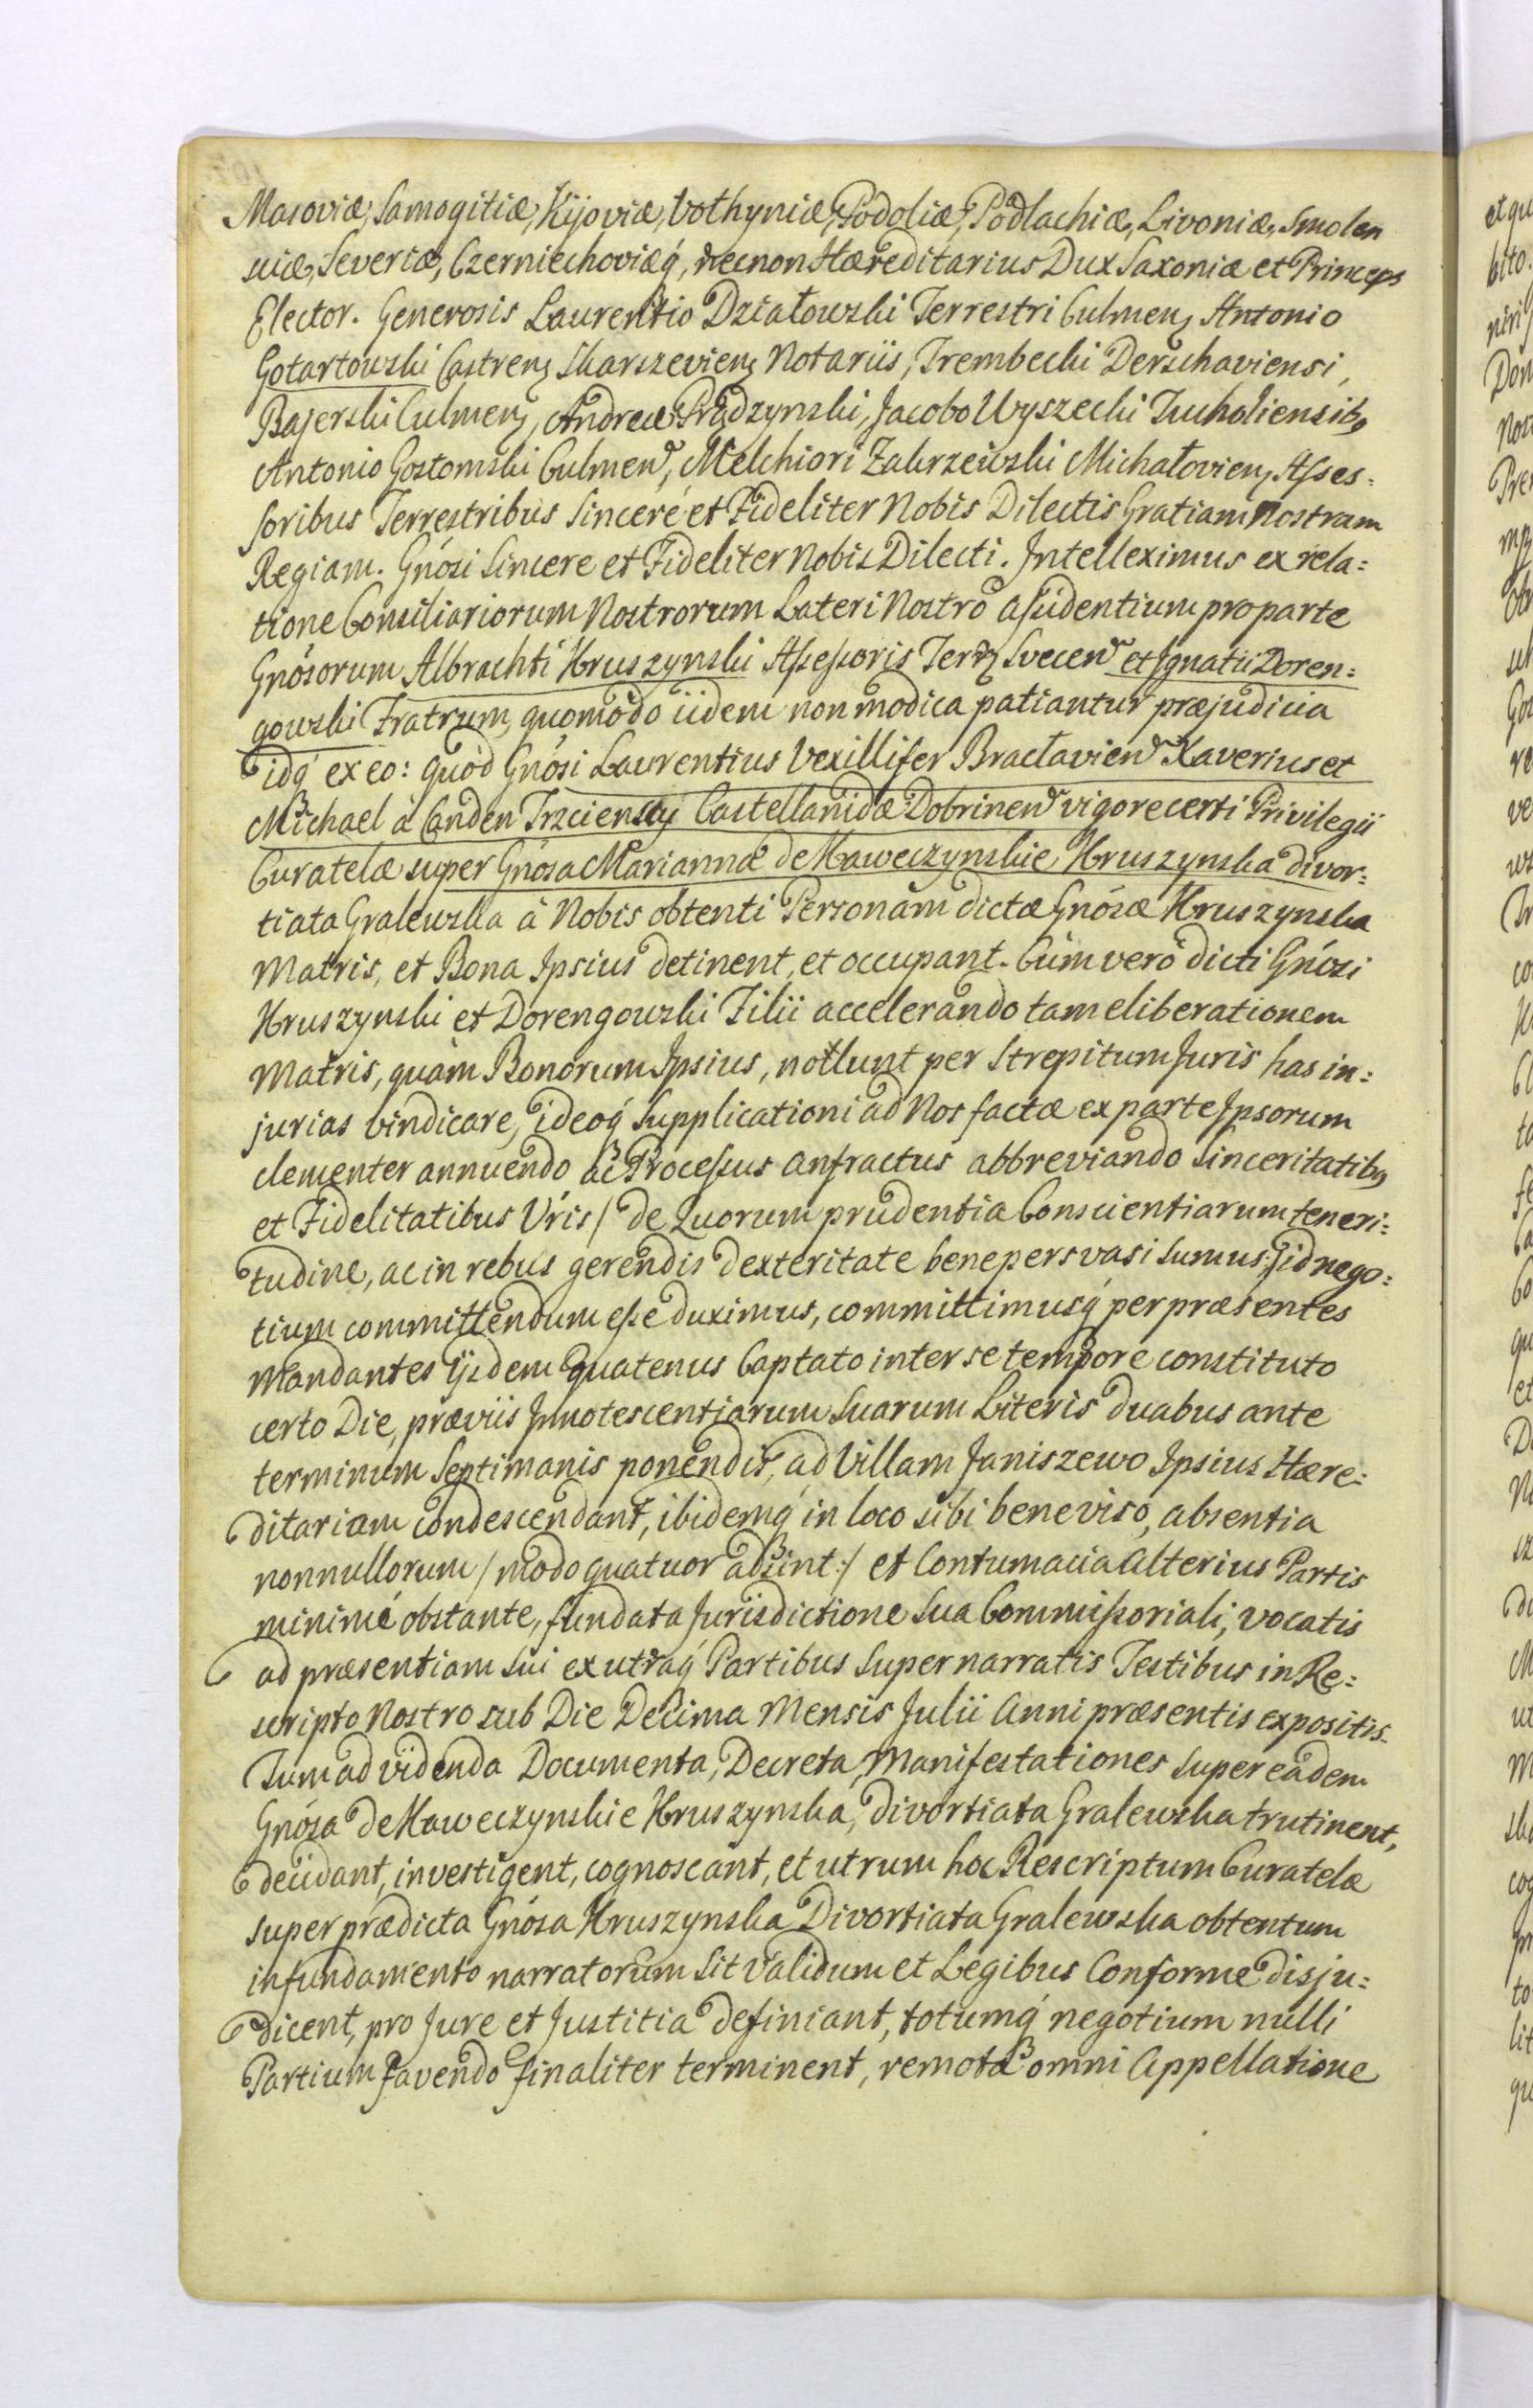 Masoviæ, Samogitiæ, Kijoviæ, Volhyniæ, Podoliæ, Podlachiæ, Livoniæ, Smolen
sciæ, Severiæ, Czerniechoviæq́, necnon Hæreditarius Dux Saxoniæ et Princeps
Elector. Generosis Laurentio Działowski Terrestri Culmenȝ Antonio
Gotartowski Castrenȝ Skarszevienȝ Notariis, Trembecki Derschaviensi,
Bajerski Culmenȝ, Andreæ Prądzynski, Jacobo Wyszecki Tucholiensibꝰ
Antonio Gostomski Culmen̄, Melchiori Zakrzewski Michałovienȝ Asses:
soribus Terrestribus Sinceré et Fideliter Nobis Dilectis Gratiam Nostram
Regiam. Gnósi Sincere et Fideliter Nobis Dilecti. Intelleximus ex rela:
tione Consiliariorum Nostrorum Lateri Nostro assidentium pro parte
Gnósorum Albrachti Kruszynski Assessoris Terrȝ Svecen̄ et Ignatii Doren:
gowski Fratrum, quomodo iidem non modica patiantur præjudicia
idq́ ex eo: quòd Gnósi Laurentius Vexillifer Bracłavien̄ Xaverius et
Michael à Canden Trzciensky Castellanidæ Dobrinen̄ vigore certi Privilegii
Curatelæ super Gnósa Marianna de Kaweczynskie Kruszynska divor:
tiata Gralewska à Nobis obtenti Personam dictæ Gnósæ Kruszynska
Matris, et Bona Ipsius detinent, et occupant. Cùm verò dicti Gnósi
Kruszynski et Dorengowski Filii accelerando tam eliberationem
Matris, quàm Bonorum Ipsius, nollunt per Strepitum Juris has in:
jurias vindicare, ideoq́ Supplicationi ad Nos factæ ex parte Ipsorum
clementer annuendo ac Processus anfractus abbreviando Sinceritatibꝰ
et Fidelitatibus Vŕis /: de Quorum prudentia Conscientiarum teneri:
tudine, ac in rebus gerendis dexteritate bene persvasi sumus :/ id nego:
tium committendum esse duximus, committimusq́ per præsentes
Mandantes Ijsdem Quatenus Captato inter se tempore constituto
certo Die, præviis Innotescentiarum Suarum Literis duabus ante
terminum Septimanis ponendis, ad Villam Janiszewo Ipsius Hære:
ditariam condescendant, ibidemq́ in loco sibi bene viso, absentia
nonnullorum /: modo quatuor adsint :/ et Contumacia Alterius Partis
minimé obstante, fundata Jurisdictione Sua Commissoriali, vocatis
ad præsentiam sui ex utraq́ Partibus Super narratis Testibus in Re:
scripto Nostro sub Die Decima Mensis Julii Anni præsentis expositis.
Tum ad videnda Documenta, Decreta, Manifestationes super eadem
Gnósa de Kaweczynskie Kruszynska, divortiata Gralewska trutinent,
decidant, investigent, cognoscant, et utrum hoc Rescriptum Curatelæ
super prædicta Gnósa Kruszynska Divortiata Gralewska obtentum
in fundamento narratorum sit validum et Legibus Conforme disju:
dicent, pro Jure et Justitia definiant, totumq́ negotium nulli
Partium favendo finaliter terminent, remota omni Appellatione